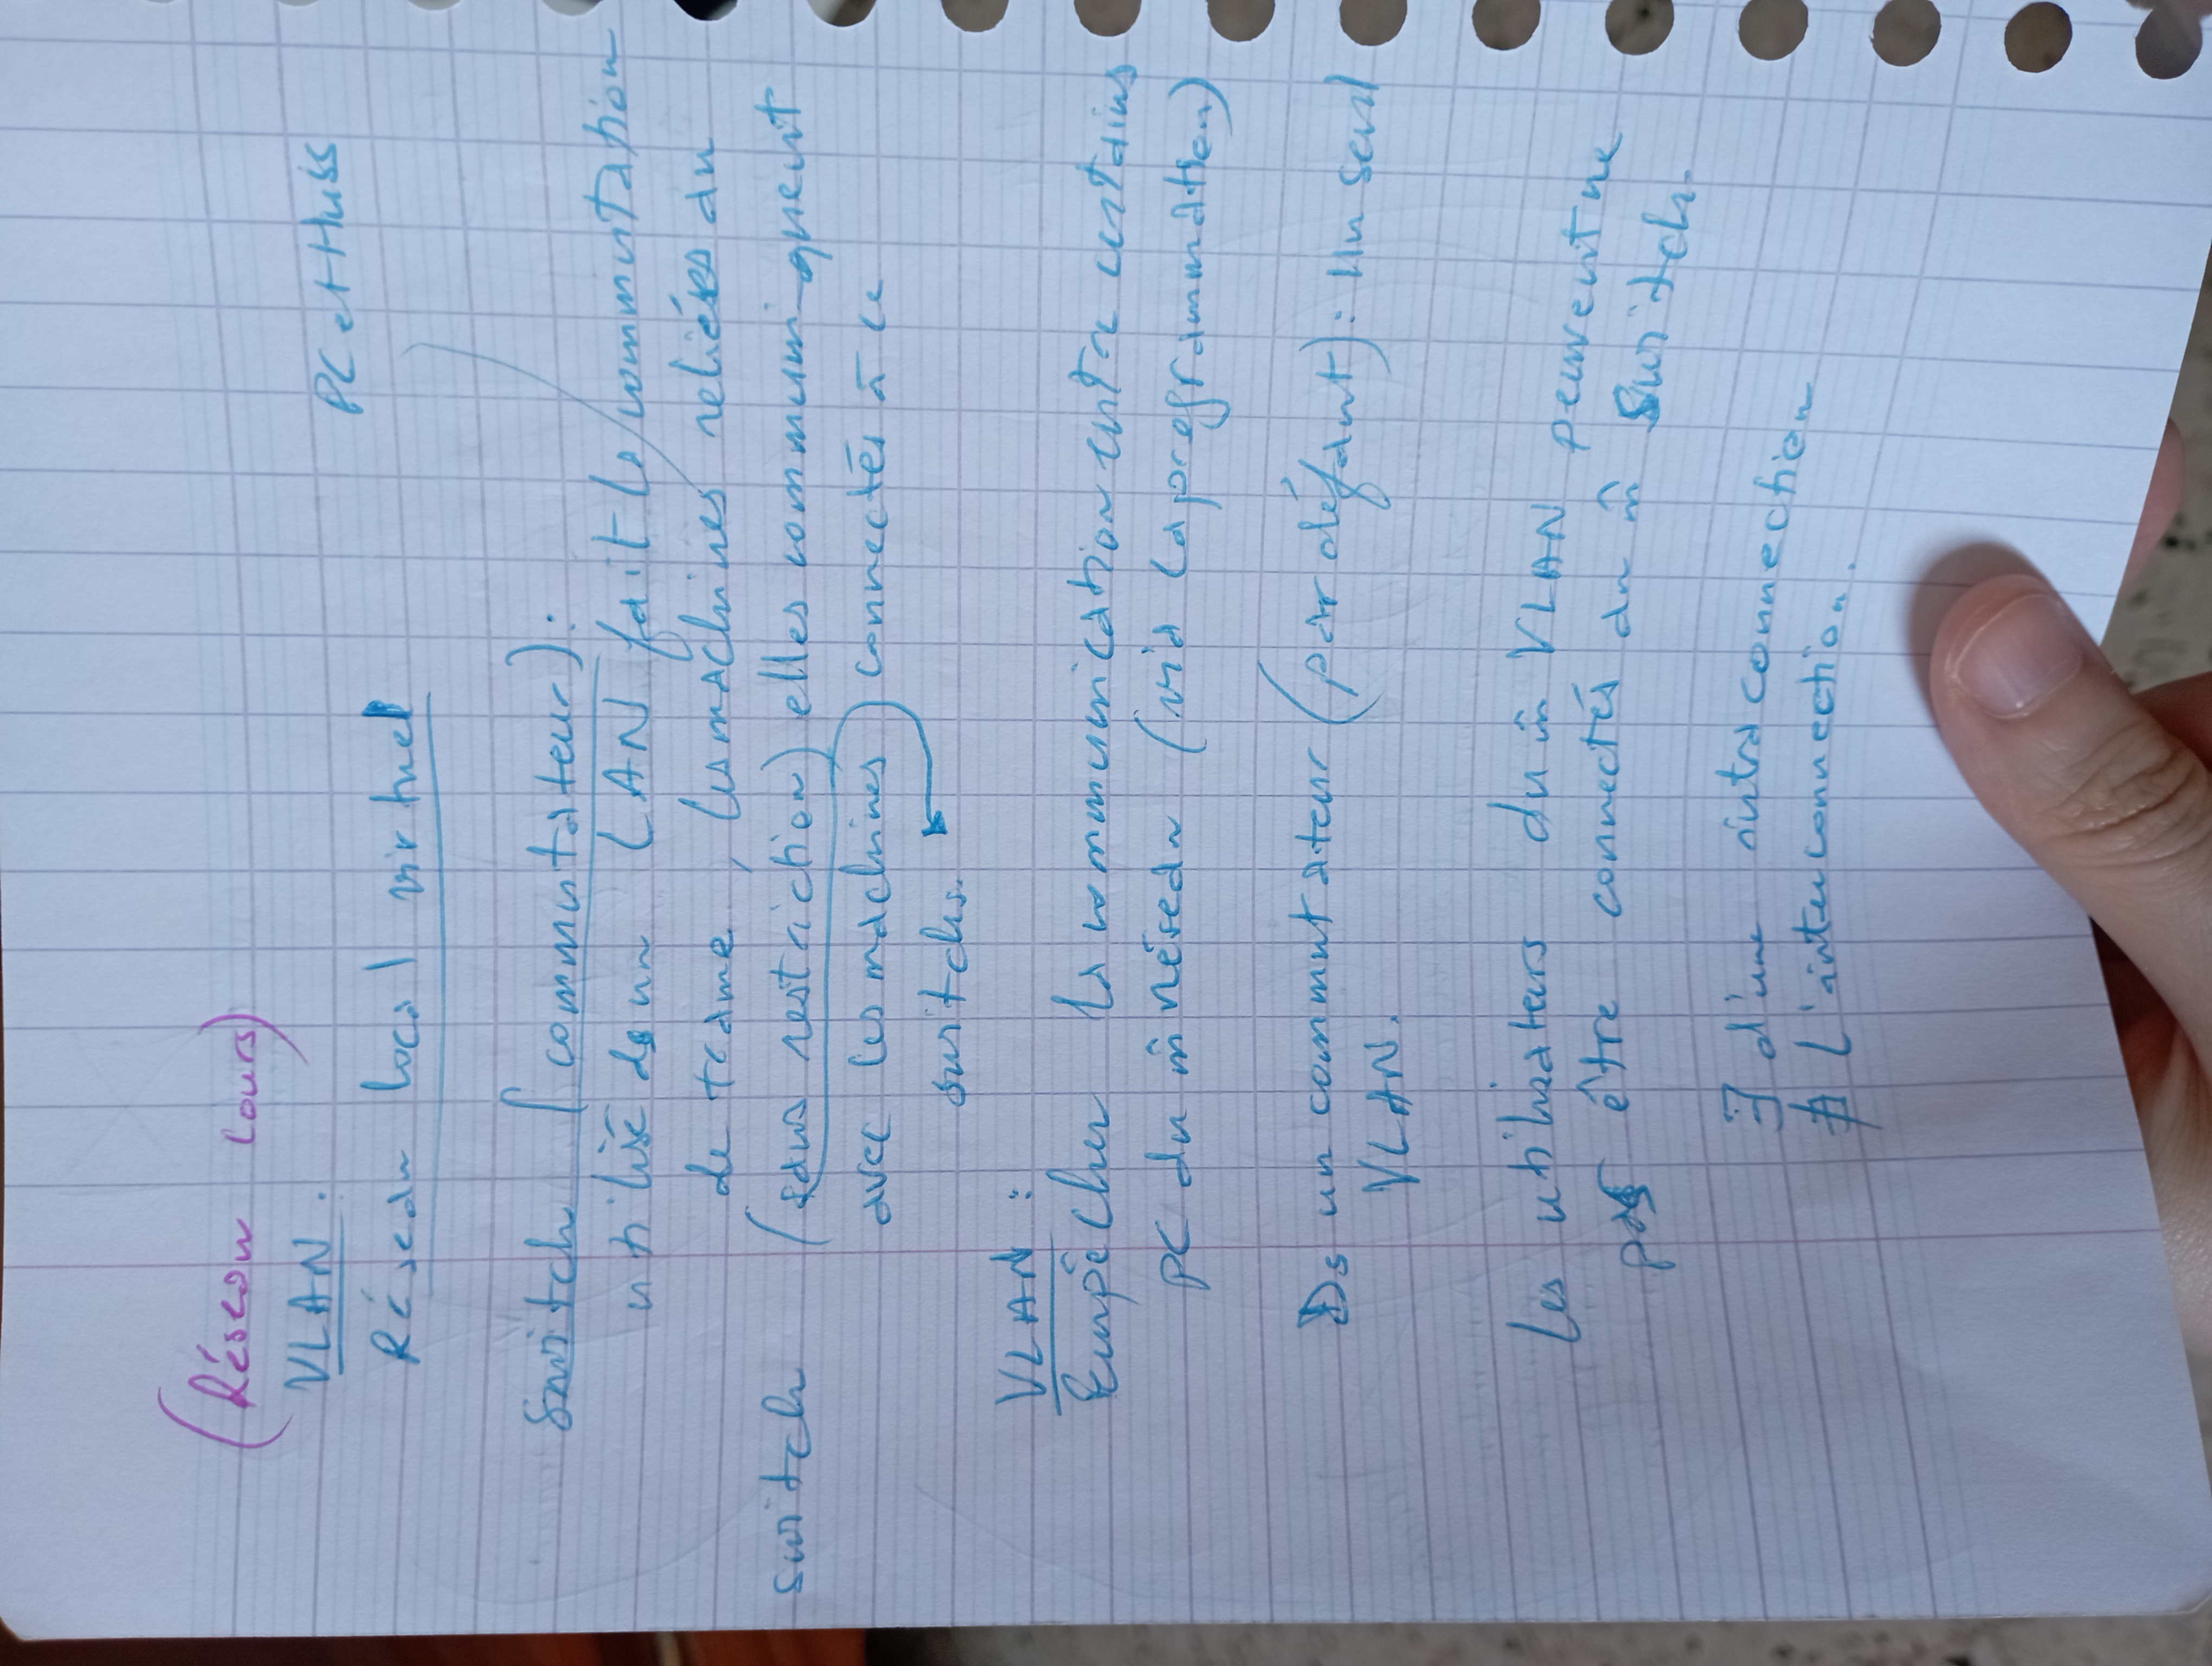 (Réseau cours)
VLAN.
PC et Huss
Réseau local virtuel
Switch (commutateur):
utilisé ds un LAN fait la commutation
de trame, les machines reliées au
switch (sans restriction) elles communiquent
avec les machines connectés à ce
switchs.
VLAN :
Empêcher la communication entre certains
PC du m̂ réseau (via la programmation)
Ds un commutateur (par défaut): Un seul
VLAN.
Les utilisateurs du m̂ VLAN peuvent ne
pas être connectés au m̂ Switch.
∃ d'une intraconnection
∄ l'interconnection.